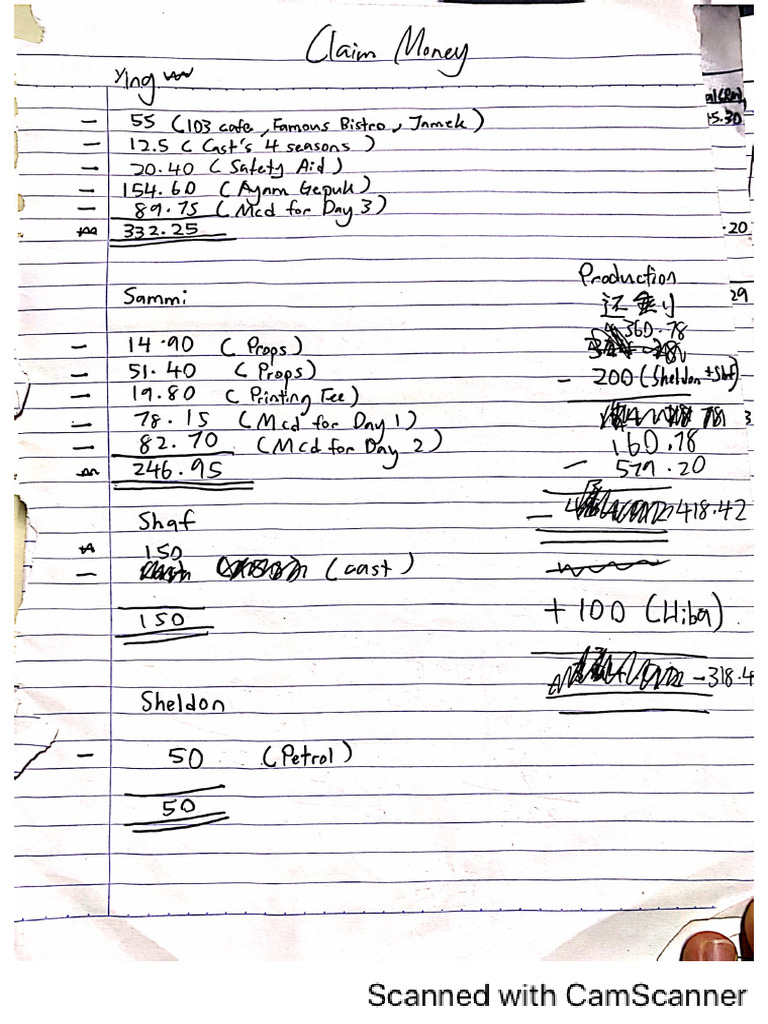 Claim Money
Ying
- 55 (103 cafe, Famous Bistro, Jamek)
- 12.5 (Cast's 4 seasons)
- 20.40 (Safety Aid)
- 154.60 (Ayam Gepuk)
- 89.75 (Mcd for Day 3)
332.25
Sammi
- 14.90 (Props)
- 51.40 (Props)
- 19.80 (Printing Fee)
- 78.15 (Mcd for Day 1)
- 82.70 (Mcd for Day 2)
246.95
Shaf
150
- (cast)
150
Sheldon
- 50 (Petrol)
50
5.30
.20
29
Production
360.78
- 200 (Sheldon + Shaf)
3
160.78
- 579.20
- 418.42
+ 100 (Hiba)
-318.4
Scanned with CamScanner